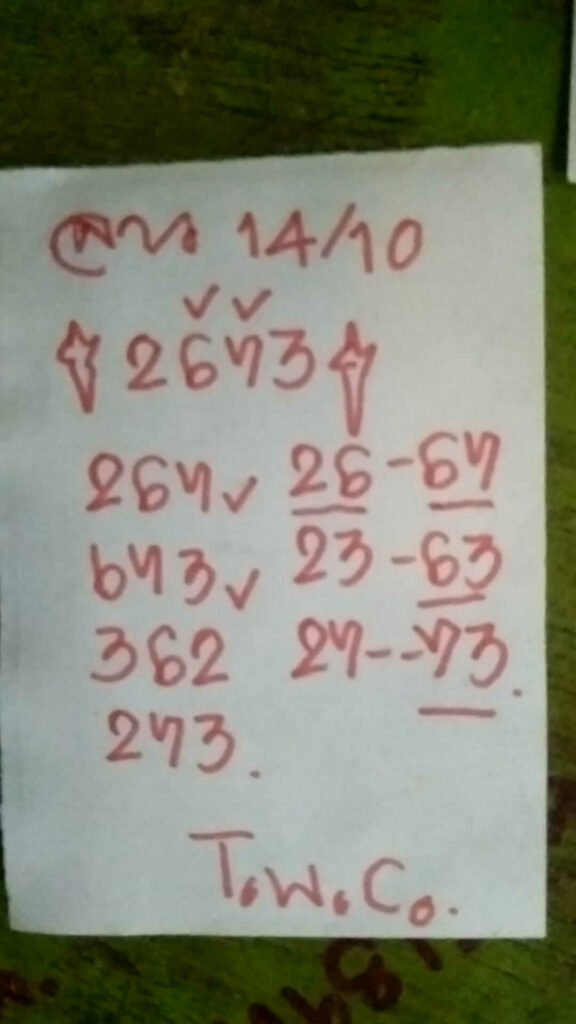 ลาว 14/10
✓✓
2673
267✓ 26-67
673✓ 23-63
362 27--73.
273.
T.W.Co.